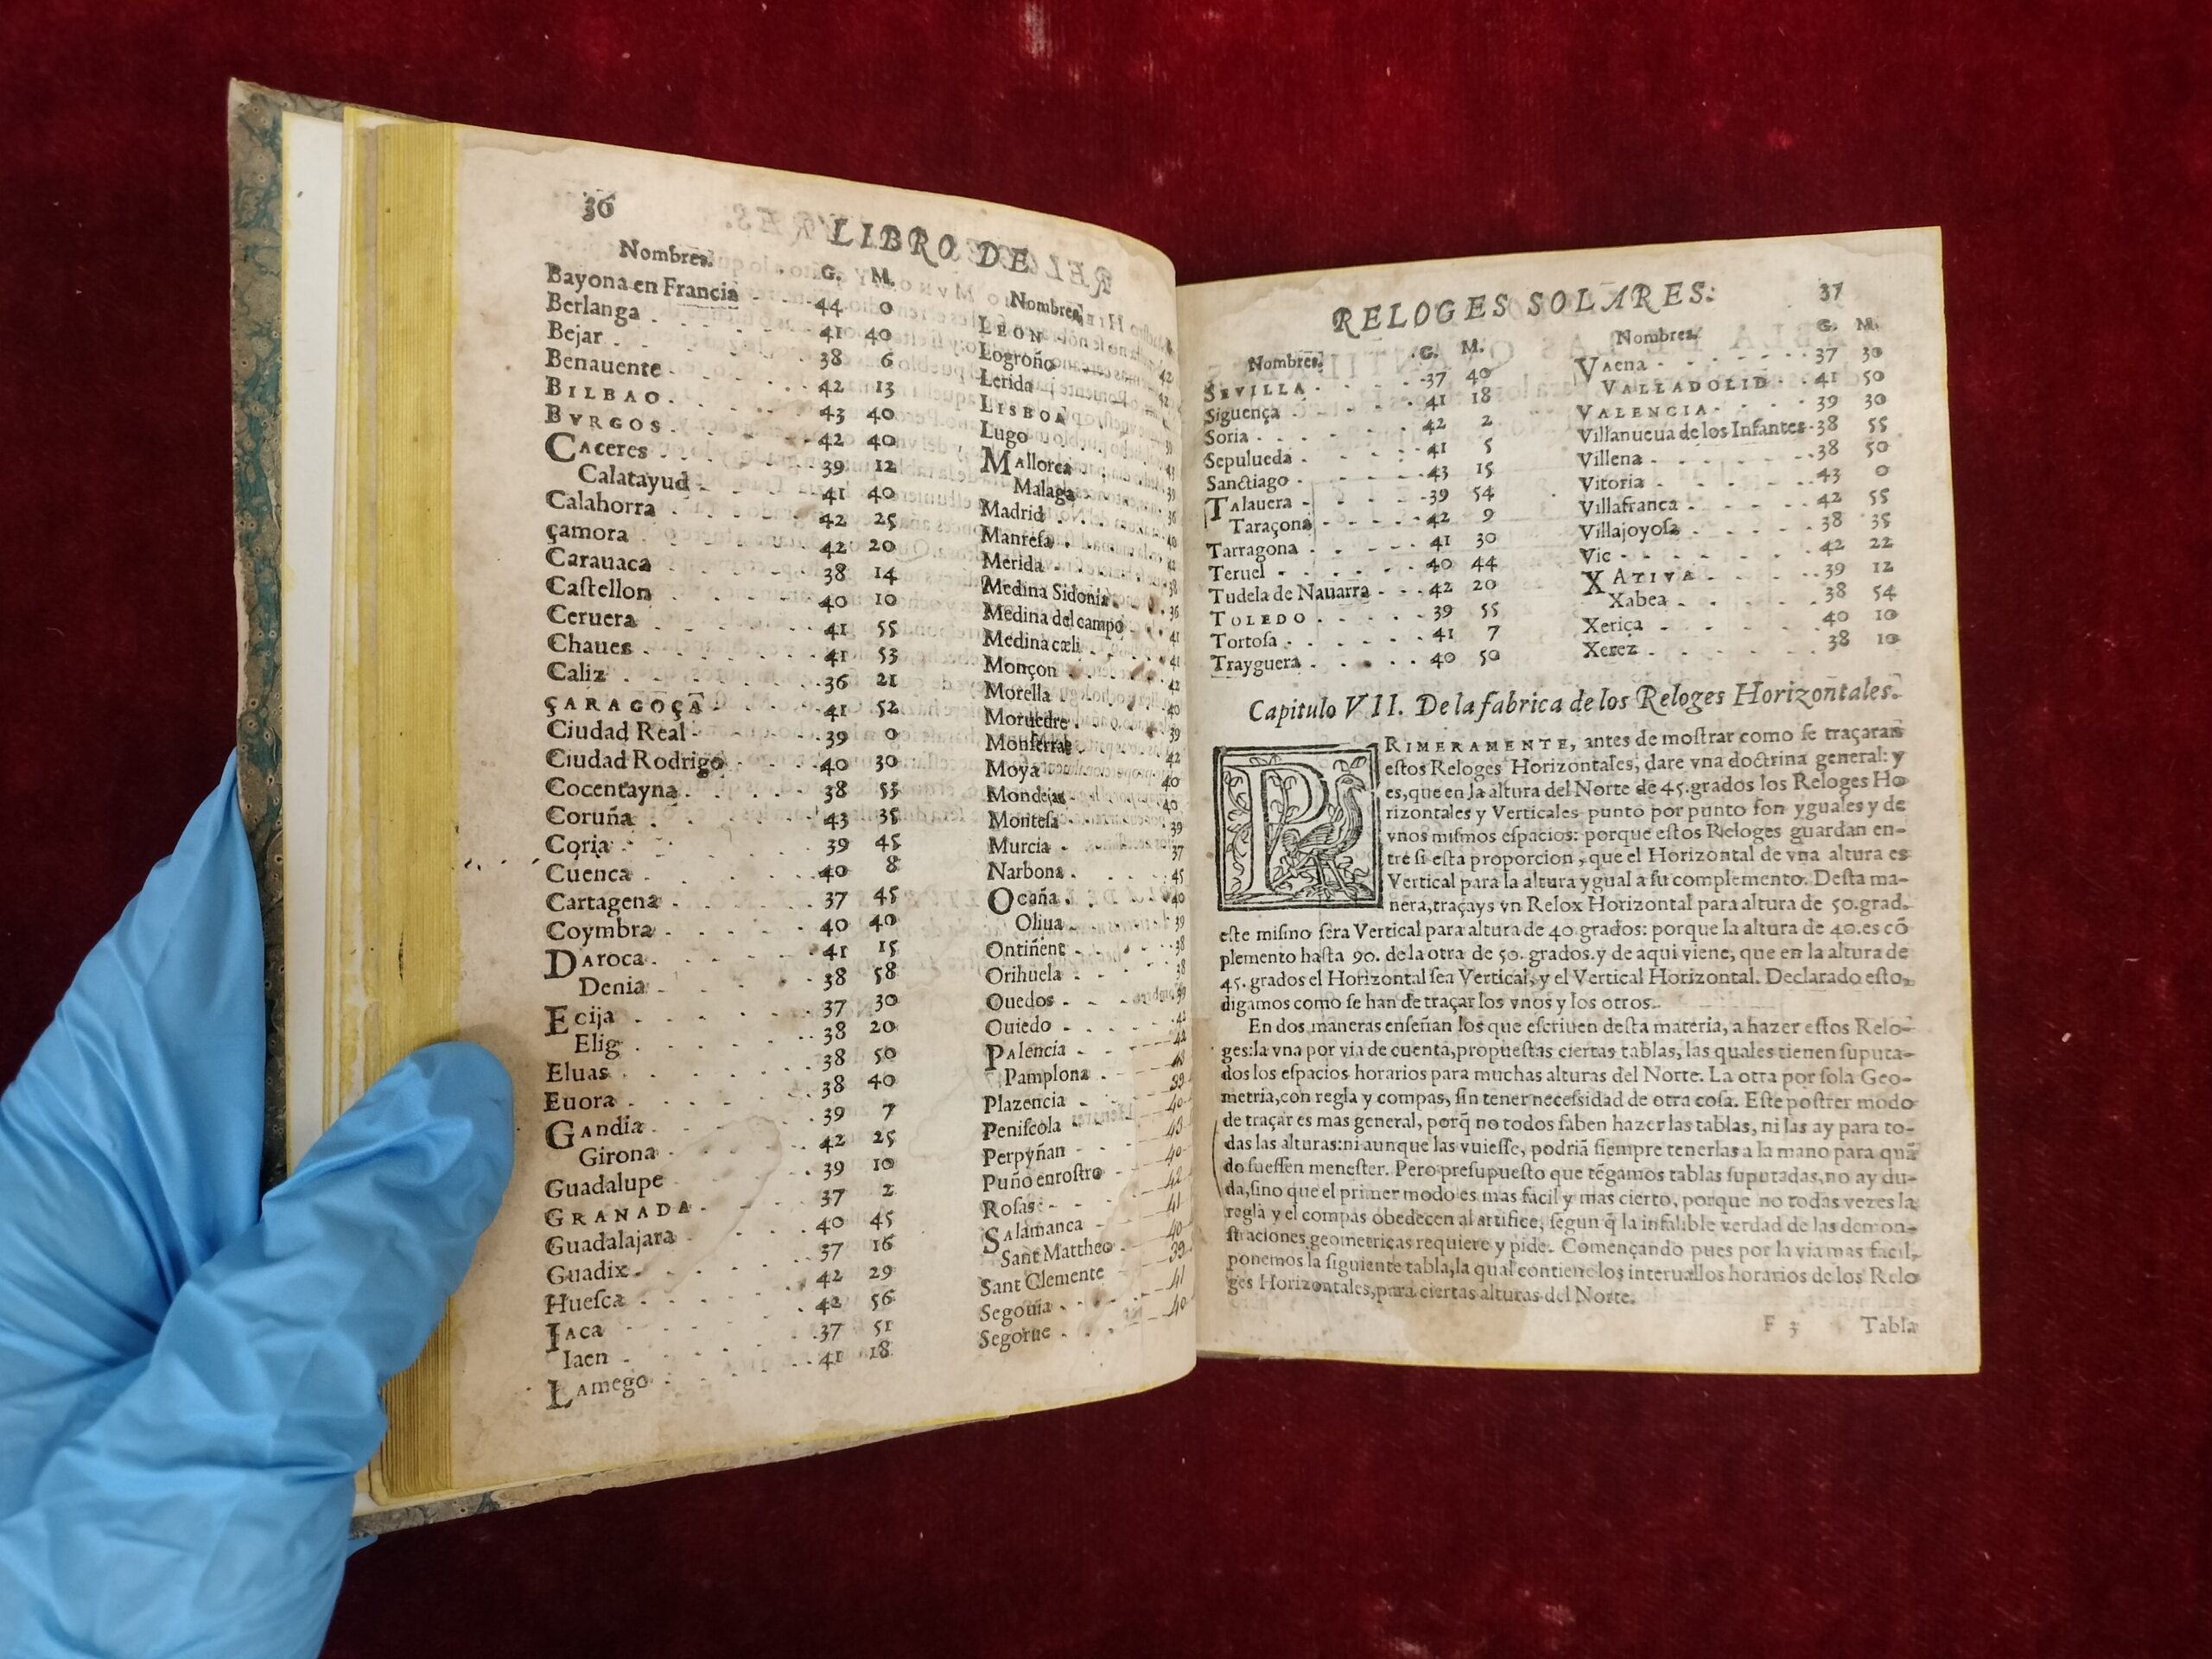 36
LIBRO DE
Nombres. G. M.
Bayona en Francia 44 0
Berlanga 41 40
Bejar 38 6
Benauente 42 13
BILBAO. 43 40
BVRGOS. 42 40
CACERES 39 12
Calatayud 41 40
Calahorra 42 25
çamora 42 20
Carauaca 38 14
Castellon 40 10
Ceruera 41 55
Chaues 41 53
Caliz 36 21
ÇARAGOÇA 41 52
Ciudad Real 39 0
Ciudad Rodrigo 40 30
Cocentayna 38 53
Coruña 43 35
Coria 39 45
Cuenca 40 8
Cartagena 37 45
Coymbra 40 40
DAROCA 41 15
Denia 38 58
Ecija 37 30
Elig 38 20
Eluas 38 50
Euora 38 40
GANDIA 39 7
Girona 42 25
Guadalupe 39 10
GRANADA 37 2
Guadalajara 40 45
Guadix 37 16
Huesca 42 29
IACA 42 56
Iaen 37 51
LAMEGO 41 18
Nombres.
LEON
Logroño
Lerida
LISBOA
Lugo
MAllorca
Malaga
Madrid
Manresa
Merida
Medina Sidonia
Medina del campo
Medina cæli
Monçon
Morella
Moruedre
Monserrat
Moya
Mondejar
Montesa
Murcia
Narbona
Ocaña
Oliua
Ontiñent
Orihuela
Ouedos
Ouiedo
PAlencia
Pamplona
Plazencia
Peniscola
Perpyñan
Puño enrostro
Rosas
SAlamanca
Sant Mattheo
Sant Clemente
Segouia
Segorue
RELOGES SOLARES:
37
Nombres. G. M.
SEVILLA 37 40
Siguença 41 18
Soria 42 2
Sepulueda 41 5
Sanctiago 43 15
TAlauera 39 54
Taraçona 42 9
Tarragona 41 30
Teruel 40 44
Tudela de Nauarra 42 20
TOLEDO 39 55
Tortosa 41 7
Trayguera 40 50
Nombres. G. M.
VAena 37 30
VALLADOLID 41 50
VALENCIA 39 30
Villanueua de los Infantes 38 55
Villena 38 50
Vitoria 43 0
Villafranca 42 55
Villajoyosa 38 35
Vic 42 22
XATIVA 39 12
Xabea 38 54
Xeriça 40 10
Xerez 38 10
Capitulo VII. De la fabrica de los Reloges Horizontales.
PRIMERAMENTE, antes de mostrar como se traçaran
estos Reloges Horizontales, dare vna doctrina general: y
es, que en la altura del Norte de 45. grados los Reloges Ho
rizontales y Verticales punto por punto son yguales y de
vnos mismos espacios: porque estos Reloges guardan en-
tre si esta proporcion, que el Horizontal de vna altura es
Vertical para la altura ygual a su complemento. Desta ma-
nera, traçays vn Relox Horizontal para altura de 50. grad.
este mismo sera Vertical para altura de 40 grados: porque la altura de 40. es cõ
plemento hasta 90. de la otra de 50. grados. y de aqui viene, que en la altura de
45. grados el Horizontal sea Vertical, y el Vertical Horizontal. Declarado esto,
digamos como se han de traçar los vnos y los otros.
En dos maneras enseñan los que escriuen desta materia, a hazer estos Relo-
ges: la vna por via de cuenta, propuestas ciertas tablas, las quales tienen suputa-
dos los espacios horarios para muchas alturas del Norte. La otra por sola Geo-
metria, con regla y compas, sin tener necessidad de otra cosa. Este postrer modo
de traçar es mas general, porq̃ no todos saben hazer las tablas, ni las ay para to-
das las alturas: ni aunque las vuiesse, podriã siempre tenerlas a la mano para quã
do fuessen menester. Pero presupuesto que tẽgamos tablas suputadas, no ay du-
da, sino que el primer modo es mas facil y mas cierto, porque no todas vezes la
regla y el compas obedecen al artifice, segun q̃ la infalible verdad de las demon-
straciones geometricas requiere y pide. Començando pues por la via mas facil,
ponemos la siguiente tabla, la qual contiene los interuallos horarios de los Relo
ges Horizontales, para ciertas alturas del Norte.
F 3 Tabla